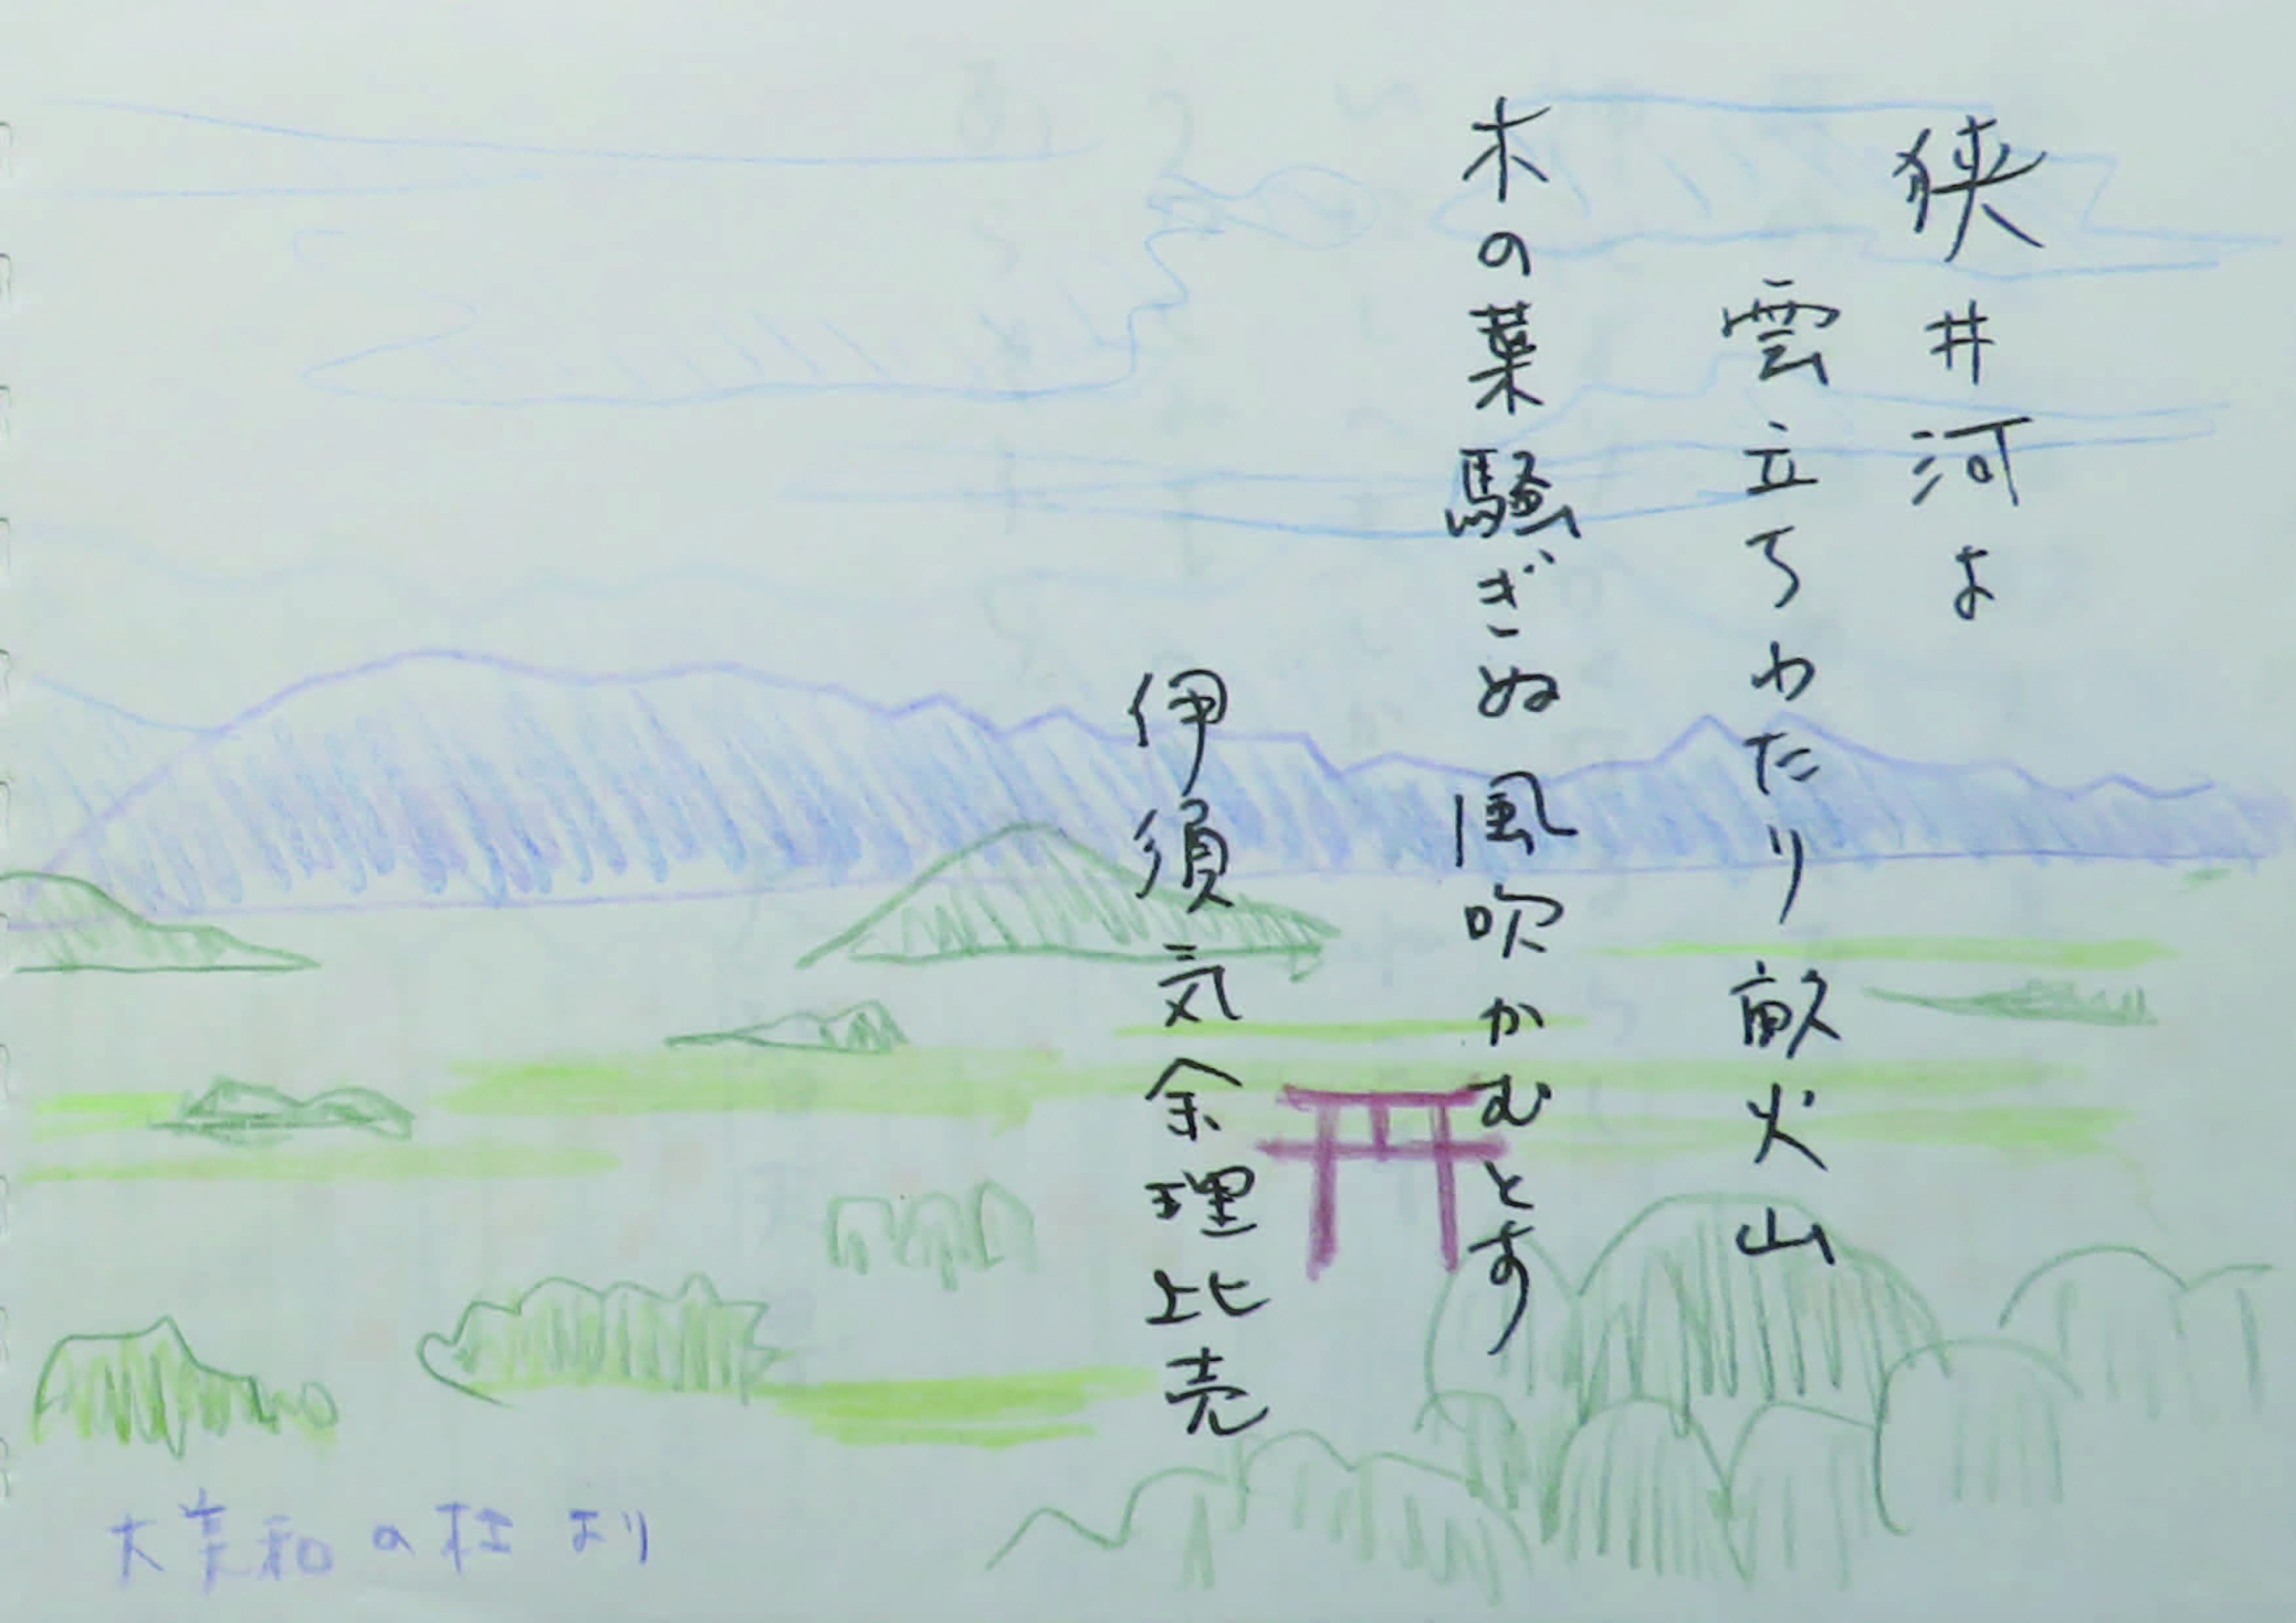 狭井河よ
雲立ちわたり畝火山
木の葉騒ぎぬ風吹かむとす
伊須気余理比売
大美和の杜より